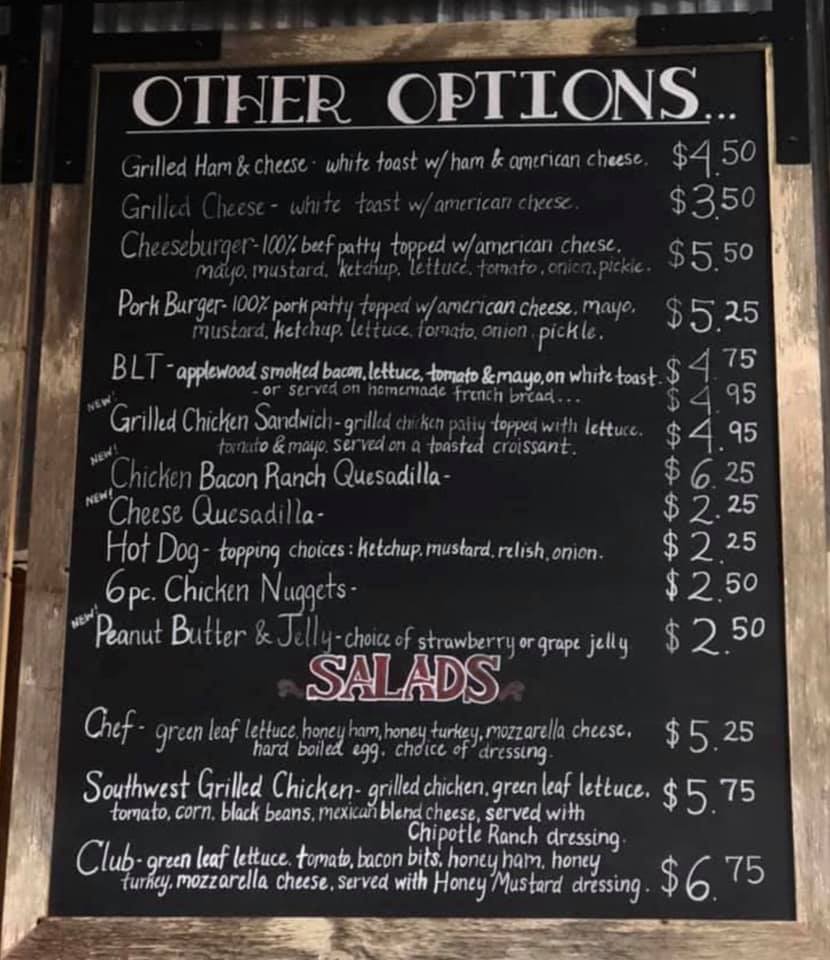 OTHER OPTIONS...
Grilled Ham & cheese - white toast w/ ham & american cheese. $4.50
Grilled Cheese - white toast w/ american cheese. $3.50
Cheeseburger - 100% beef patty topped w/american cheese, $5.50
mayo, mustard, ketchup, lettuce, tomato, onion, pickle.
Pork Burger - 100% pork patty topped w/american cheese, mayo, $5.25
mustard, ketchup, lettuce, tomato, onion, pickle.
BLT - applewood smoked bacon, lettuce, tomato & mayo, on white toast. $4.75
- or served on homemade french bread... $4.95
NEW! Grilled Chicken Sandwich - grilled chicken patty topped with lettuce, $4.95
tomato & mayo, served on a toasted croissant.
NEW! Chicken Bacon Ranch Quesadilla - $6.25
NEW! Cheese Quesadilla - $2.25
Hot Dog - topping choices: ketchup, mustard, relish, onion. $2.25
6pc. Chicken Nuggets - $2.50
NEW! Peanut Butter & Jelly - choice of strawberry or grape jelly $2.50
SALADS
Chef - green leaf lettuce, honey ham, honey turkey, mozzarella cheese, $5.25
hard boiled egg, choice of dressing.
Southwest Grilled Chicken - grilled chicken, green leaf lettuce, $5.75
tomato, corn, black beans, mexican blend cheese, served with
Chipotle Ranch dressing.
Club - green leaf lettuce, tomato, bacon bits, honey ham, honey $6.75
turkey, mozzarella cheese, served with Honey Mustard dressing.